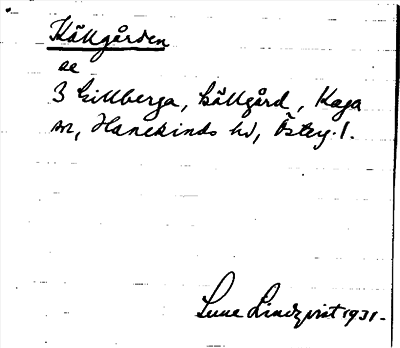 Källgården
ae
3 Gillberga, källgård, Kaga
sn, Hanekinds hd, Östg. l.
Sune Lindqvist 1931.